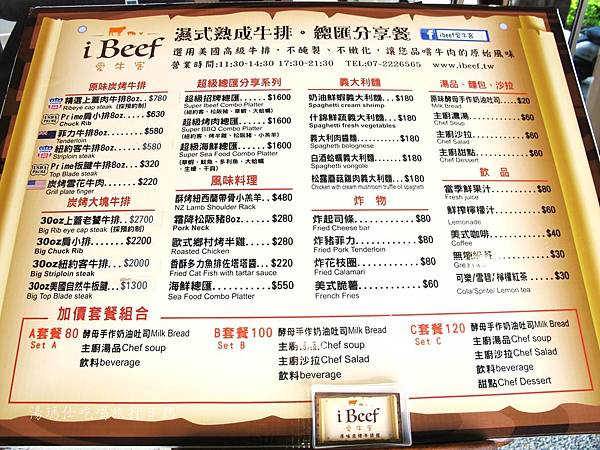 i Beef
愛牛客
濕式熟成牛排。總匯分享餐
f ibeef愛牛客
選用美國高級牛排,不醃製、不嫩化,讓您品嚐牛肉的原始風味
營業時間:11:30-14:30 17:30-21:30 TEL:07-2226565 www.ibeef.tw
原味炭烤牛排
精選上蓋肉牛排8oz. $780
Ribeye cap steak (採預約制)
Prime肩小排8oz $630
Chuck Rib
菲力牛排8oz $580
Tenderloin
紐約客牛排8oz $580
Striploin steak
Prime板腱牛排8oz $320
Top Blade steak
炭烤雲花牛肉 $220
Grill plate finger
炭烤大塊牛排
30oz上蓋老饕牛排..$2700
Big Rib eye cap steak (採預約制)
30oz肩小排 $2200
Big Chuck Rib
30oz紐約客牛排 $2000
Big Striploin steak
30oz美國自然牛板腱...$1300
Big Top Blade steak
超級總匯分享系列
超級招牌總匯 $1600
Super Beef Combo Platter
超級烤肉總匯 $1600
Super BBQ Combo Platter
超級海鮮總匯 $1600
Super Sea Food Combo Platter
風味料理
酥烤紐西蘭帶骨小羔羊.. $480
NZ Lamb Shoulder Rack
霜降松阪豬8oz $280
Pork Neck
歐式鄉村烤半雞 $280
Roasted Chicken
香酥多力魚排佐塔塔醬.. $220
Fried Cat Fish with tartar sauce
海鮮總匯 $550
Sea Food Combo Platter
義大利麵
奶油鮮蝦義大利麵... $180
Spaghetti cream shrimp
什錦鮮蔬義大利麵 $180
Spaghetti fresh vegetables
義大利肉醬麵 $180
Spaghetti bolognese
白酒蛤蠣義大利麵 $180
Spaghetti vongole
松露蘑菇雞肉義大利麵...$180
Chicken with cream mushroom truffle oil spaghetti
炸物
炸起司條 $80
Fried Cheese bar
炸豬菲力 $80
Fried Pork Tenderloin
炸花枝圈 $80
Fried Calamari
美式脆薯 $60
French Fries
湯品、麵包、沙拉
原味酵母手作奶油吐司..$20
Milk Bread
主廚濃湯 $60
Chef Soup
主廚沙拉 $60
Chef Salad
主廚甜點 $60
Chef Dessert
飲品
當季鮮果汁 $80
Fresh juice
鮮搾檸檬汁 $60
Lemonade
美式咖啡 $40
Coffee
$30
可樂/雪碧/檸檬紅茶...$30
Cola/Sprite/ Lemon tea
加價套餐組合
A套餐 80
Set A
酵母手作奶油吐司Milk Bread
主廚湯品Chef soup
飲料beverage
B套餐 100
Set B
酵母手作奶油吐司Milk Bread
主廚湯品Chef soup
主廚沙拉Chef Salad
飲料beverage
C套餐 120
Set C
酵母手作奶油吐司Milk Bread
主廚湯品Chef soup
主廚沙拉Chef Salad
飲料beverage
甜點Chef Dessert
i Beef
愛牛客
原味炭烤牛排館